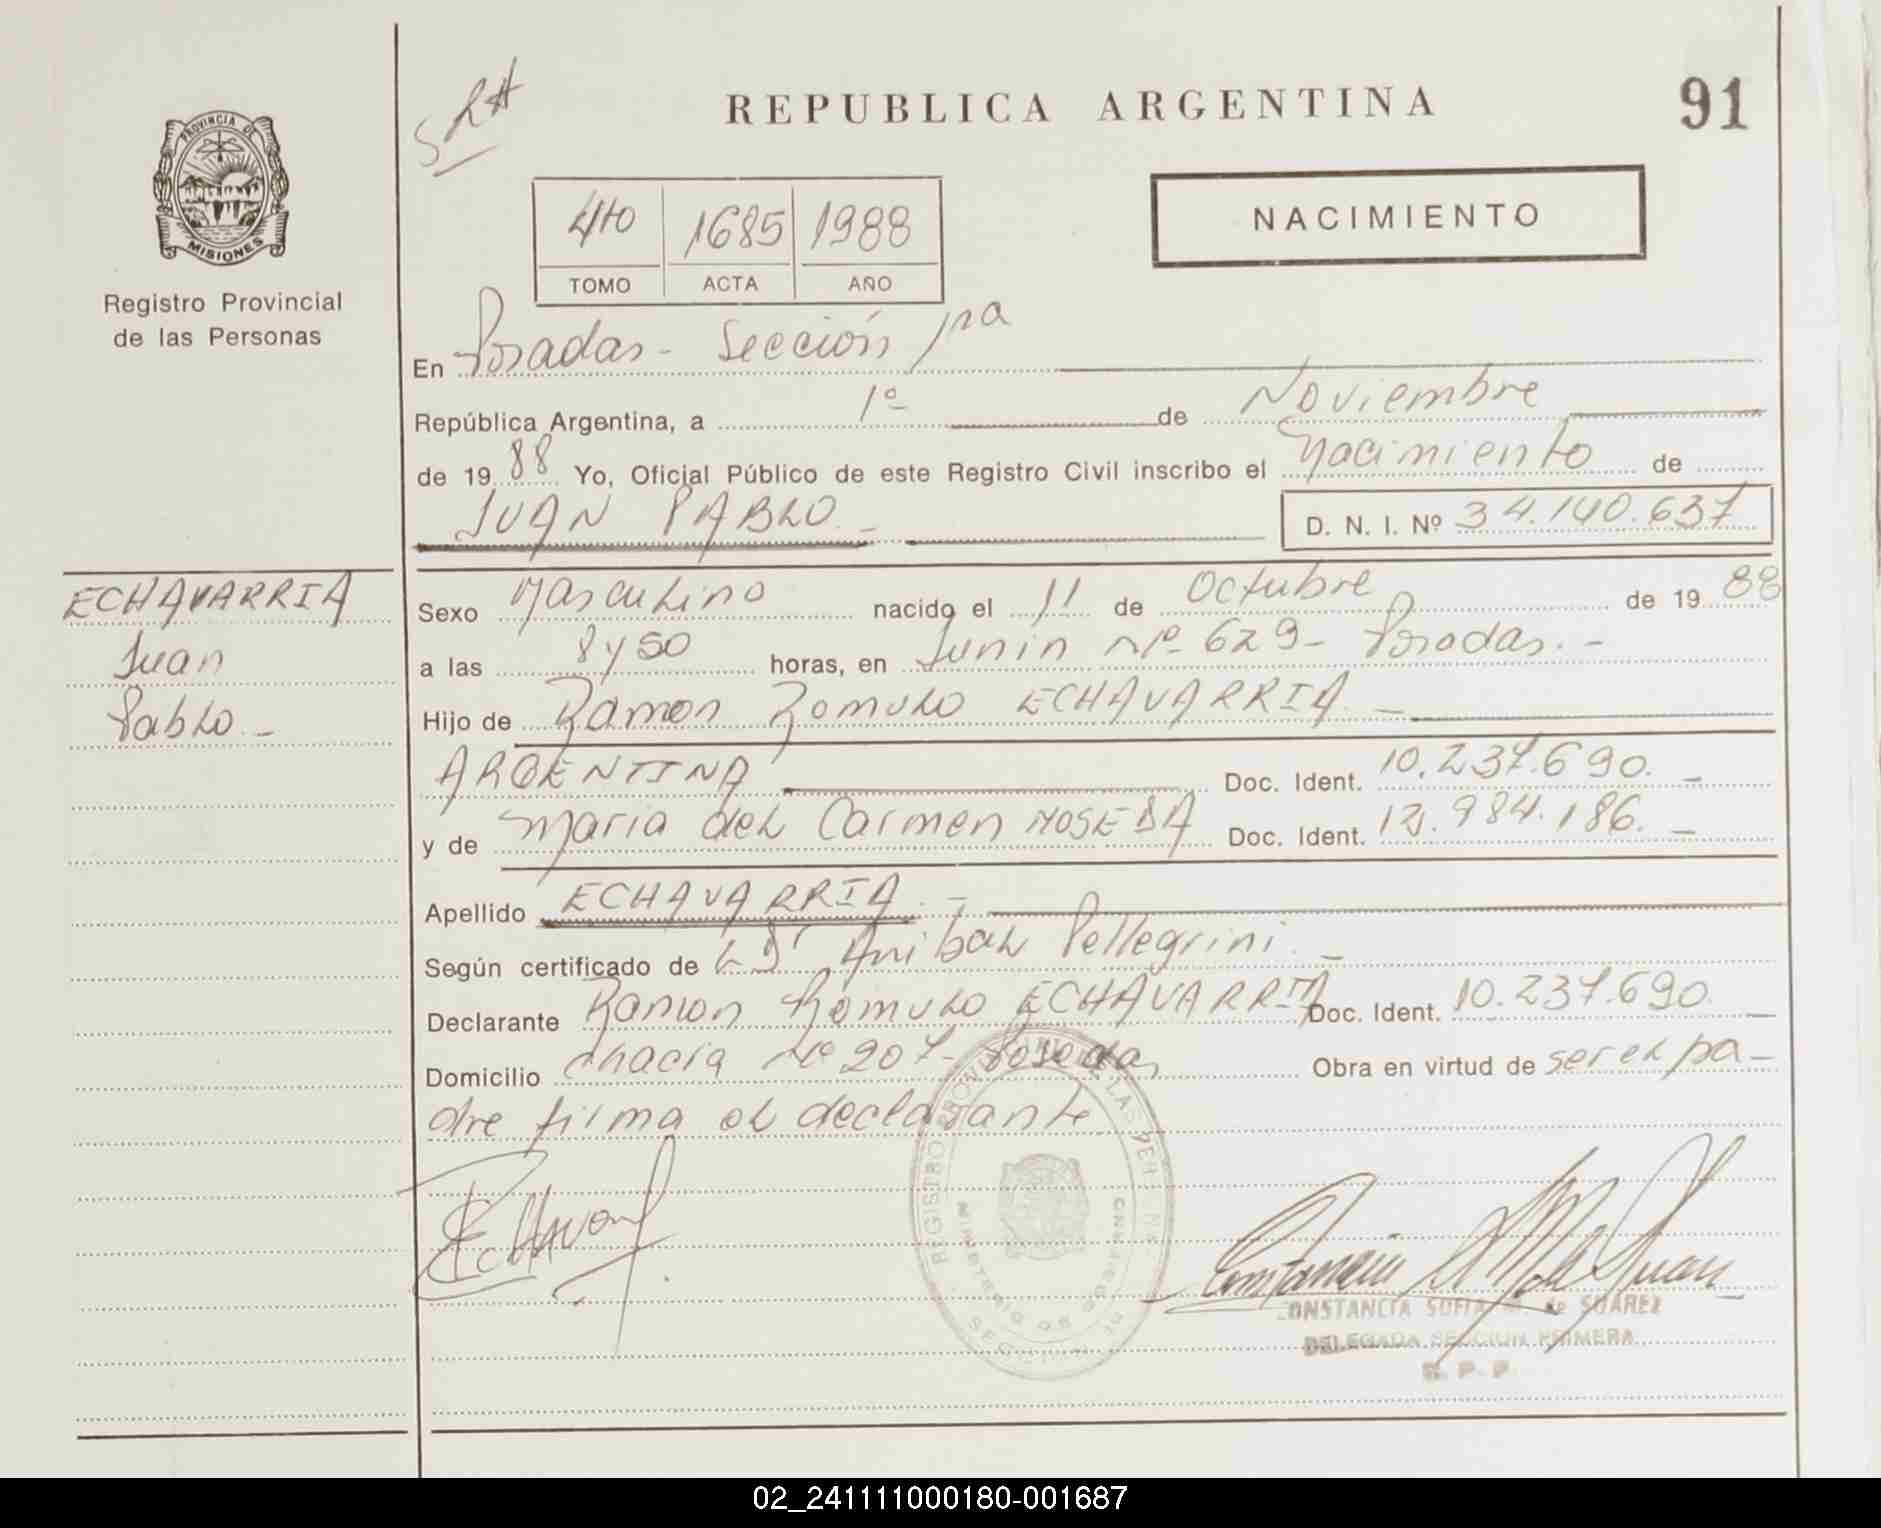 PROVINCIA DE
MISIONES
Registro Provincial
de las Personas
REPUBLICA ARGENTINA
91
4to 1685 1988
TOMO ACTA AÑO
NACIMIENTO
En Posadas - Sección 1ra
República Argentina, a 1º de Noviembre
de 1988 Yo, Oficial Público de este Registro Civil inscribo el Nacimiento de
JUAN PABLO - D. N. I. Nº 34.140.637
ECHAVARRIA
Juan
Pablo. -
Sexo Masculino nacido el 11 de Octubre de 1988
a las 8 y 50 horas, en Junin nº 629 - Posadas. -
Hijo de Ramon Romulo ECHAVARRIA. -
ARGENTINA Doc. Ident. 10.237.690. -
y de Maria del Carmen MOSEDA Doc. Ident. 12.984.186. -
Apellido ECHAVARRIA. -
Según certificado de el Dr Anibal Pellegrini. -
Declarante Ramon Romulo ECHAVARRIA Doc. Ident. 10.237.690. -
Domicilio chacra nº 207 - Posadas Obra en virtud de ser el pa-
dre firma el declarante
CONSTANCIA SOFIA M. de SUAREZ
DELEGADA SECCION PRIMERA
R. P. P.
02_241111000180-001687